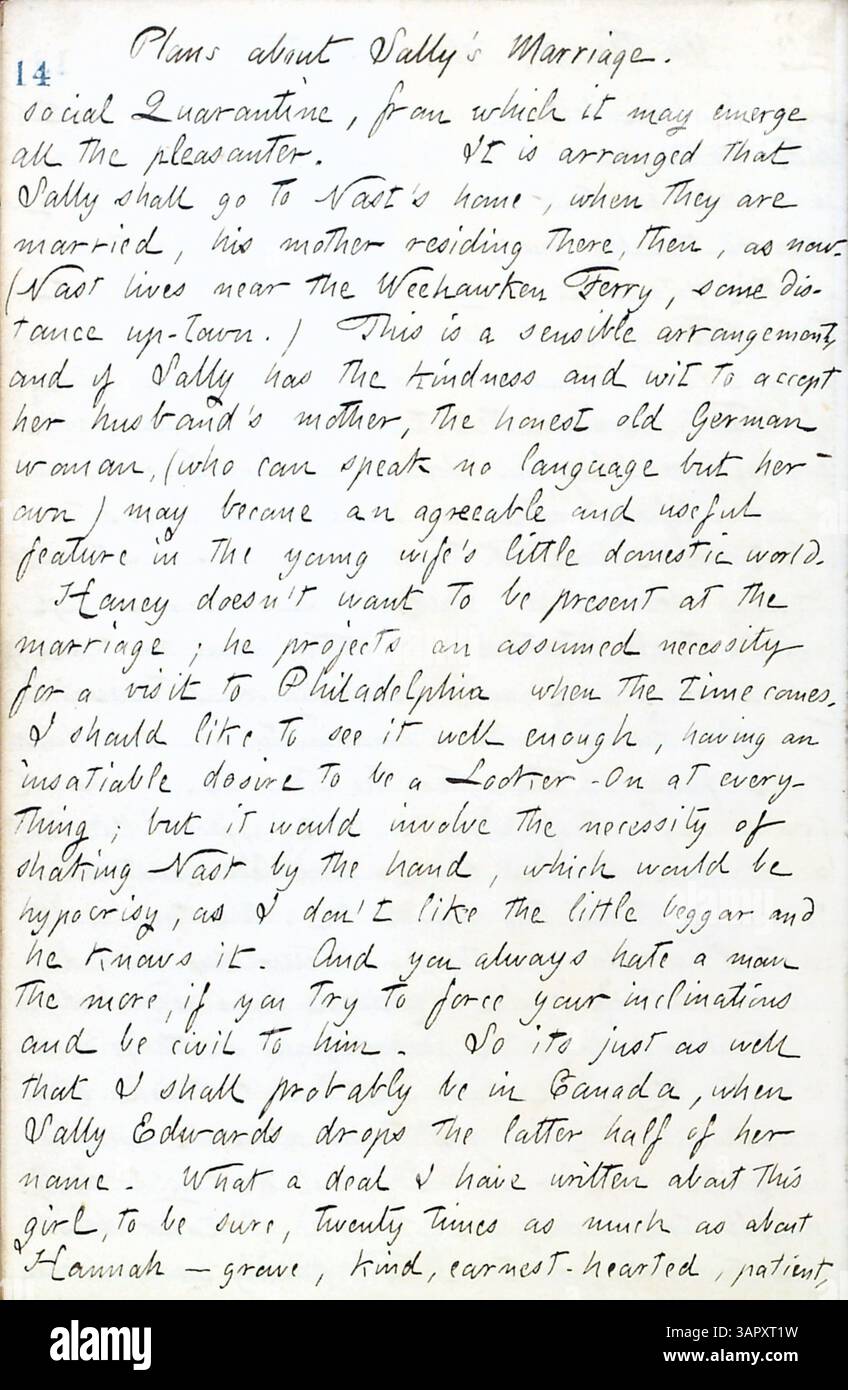 Plans about Sally's Marriage.
14
social Quarantine, from which it may emerge
all the pleasanter. It is arranged that
Sally shall go to Nast's home, when they are
married, his mother residing there, then, as now.
(Nast lives near the Weehawken Ferry, some dis-
tance up-town.) This is a sensible arrangement,
and if Sally has the kindness and wit to accept
her husband's mother, the honest old German
woman, (who can speak no language but her
own) may become an agreeable and useful
feature in the young wife's little domestic world.
Haney doesn't want to be present at the
marriage; he projects an assumed necessity
for a visit to Philadelphia when the time comes.
I should like to see it well enough, having an
insatiable desire to be a Looker-On at every-
thing; but it would involve the necessity of
shaking Nast by the hand, which would be
hypocrisy, as I don't like the little beggar and
he knows it. And you always hate a man
the more, if you try to force your inclinations
and be civil to him. So its just as well
that I shall probably be in Canada, when
Sally Edwards drops the latter half of her
name. What a deal I have written about this
girl, to be sure, twenty times as much as about
Hannah — grave, kind, earnest-hearted, patient,
alamy
Image ID: 3APXT1W
www.alamy.com